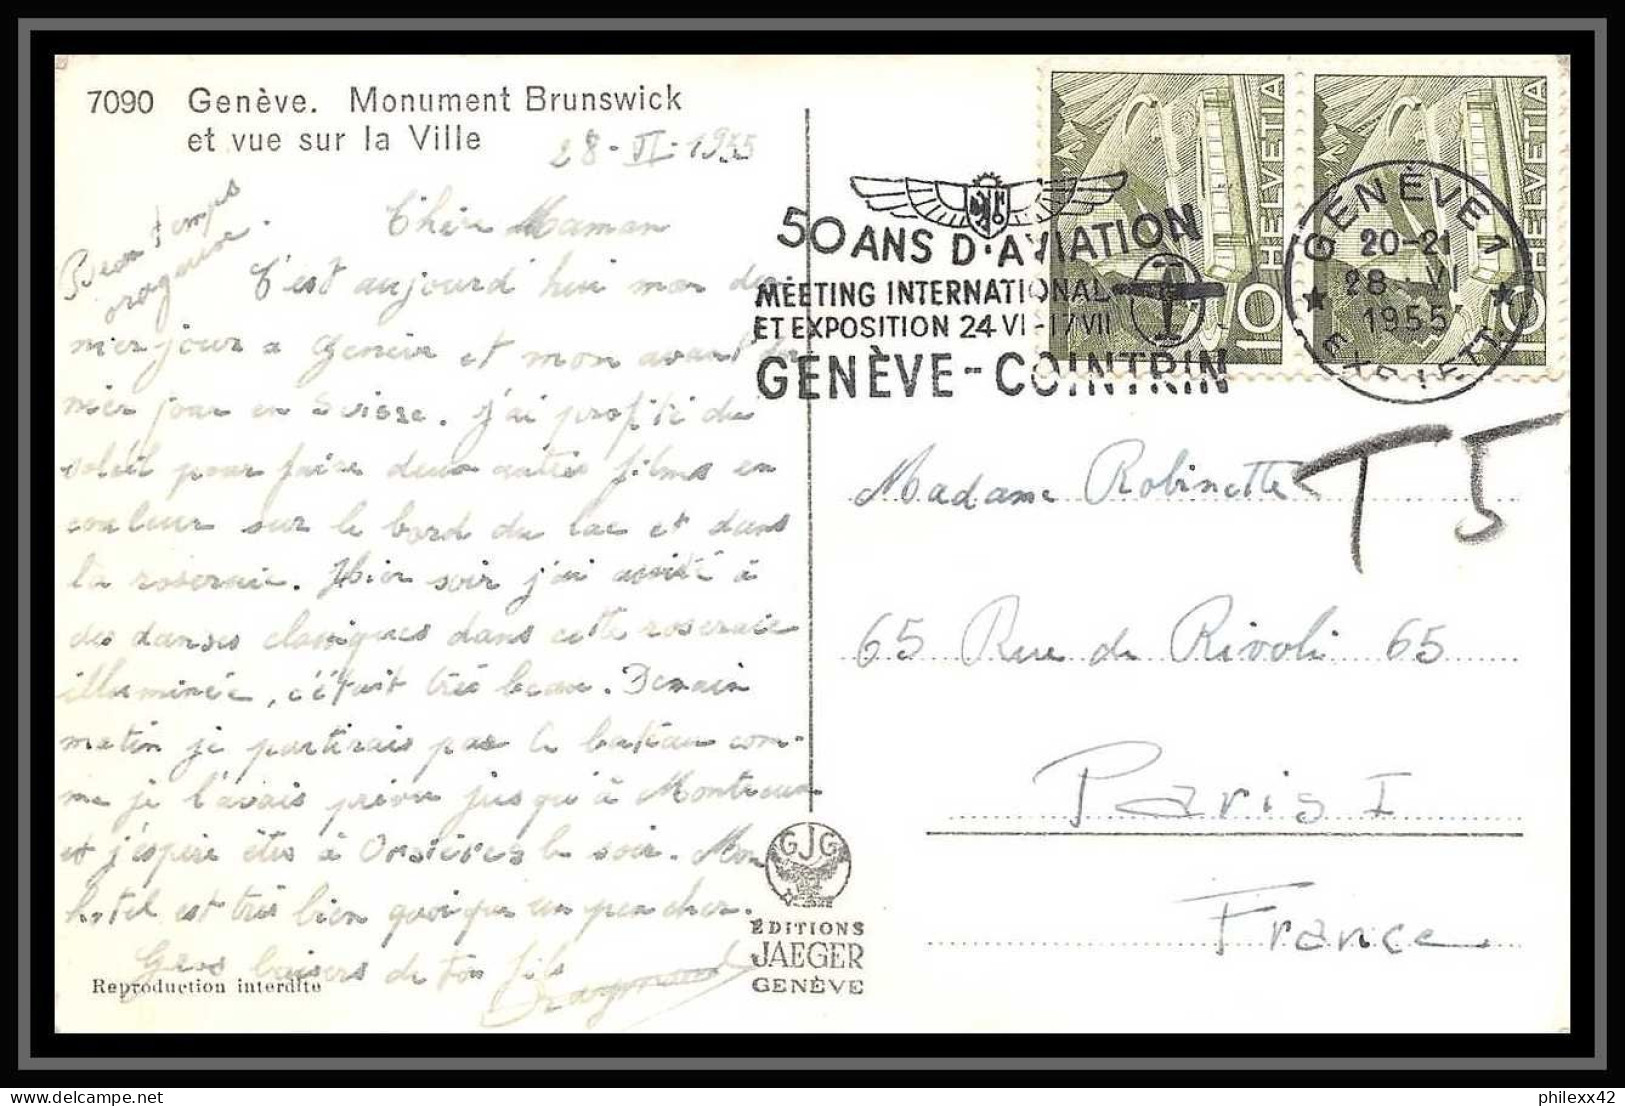 7090 Genève. Monument Brunswick
et vue sur la Ville
28-VI-1955
Beau temps
orageux.
Chère Maman
C'est aujourd'hui mon der
nier jour a Genève et mon avant der
nier jour en Suisse. J'ai profité du
soleil pour faire deux autres films en
couleur sur le bord du lac et dans
la roseraie. Hier soir j'ai assisté à
des danses classiques dans cette roseraie
illuminée, c'était très beau. Demain
matin je partirais par le bateau com-
me je l'avais prévu jusqu'à Montreux
et j'espère être à Orsières le soir. Mon
hotel est très bien quoique un peu cher.
Gros baisers de ton fils
Raymond
Reproduction interdite
GJG
EDITIONS
JAEGER
GENÈVE
50 ANS D'AVIATION
MEETING INTERNATIONAL
ET EXPOSITION 24 VI-17 VII
GENÈVE-COINTRIN
HELVETIA
10
HELVETIA
10
GENÈVE 1
20-21
28.VI
1955
EXP. LETT.
T5
Madame Robinette
65 Rue de Rivoli 65
Paris I
France
philexx42